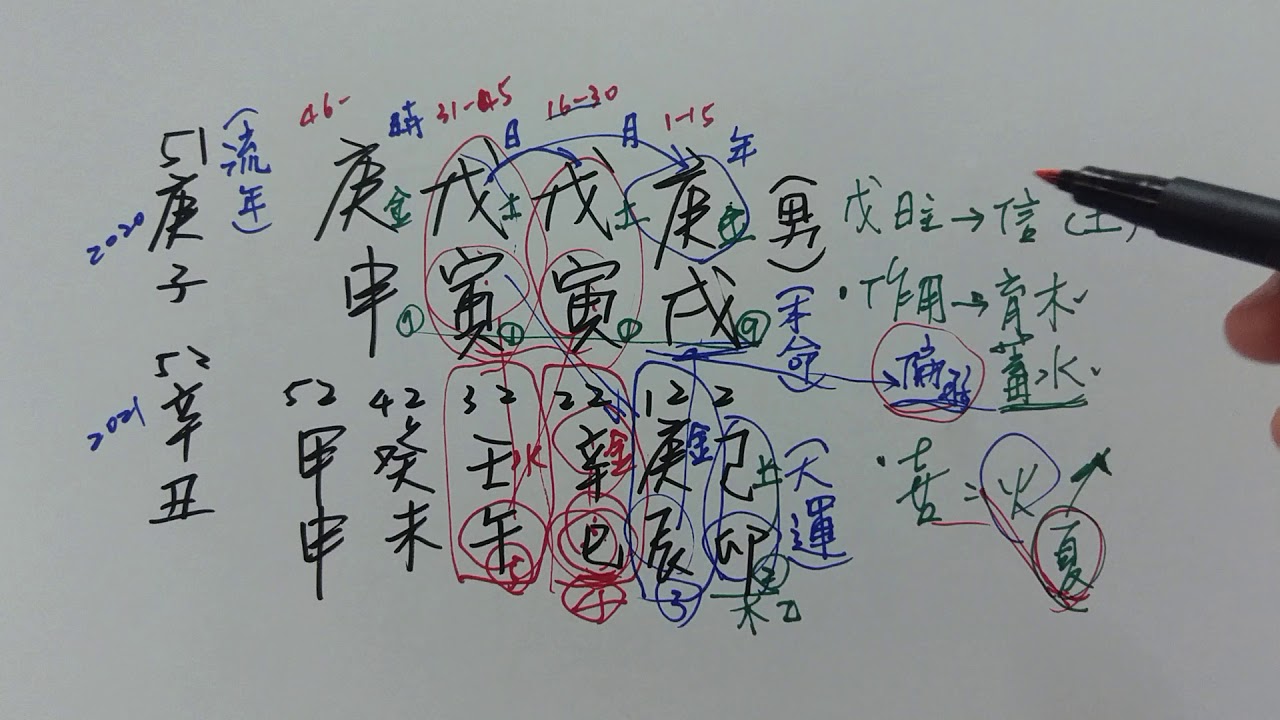 46- 31-45 16-30 1-15
時 日 月 年
51 (流年)
2020 庚子
庚金 戊土 戊土 庚金 (男)
申 寅 寅 戌 (本命)
9 1 1 9
戊日主→信(土)
·作用→育木
蓄水
偏
52
2021 辛丑
52 42 32 22 12 2
甲 癸 壬水 辛金 庚金 己土 (大運)
申 未 午 巳 辰 卯
5 4 3 2
木乙
·喜:火
夏